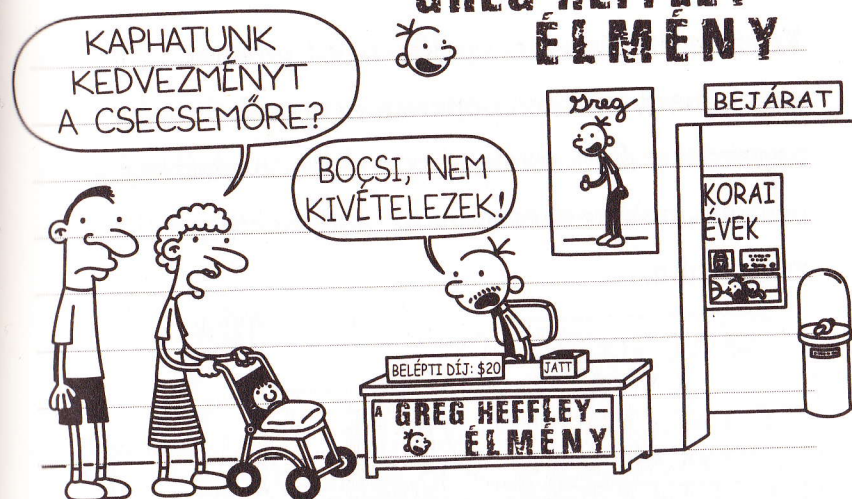 GREG HEFFLEY-
ÉLMÉNY
KAPHATUNK
KEDVEZMÉNYT
A CSECSEMŐRE?
BOCSI, NEM
KIVÉTELEZEK!
Greg
BEJÁRAT
KORAI
ÉVEK
BELÉPTI DÍJ: $20
JATT
A GREG HEFFLEY-
ÉLMÉNY